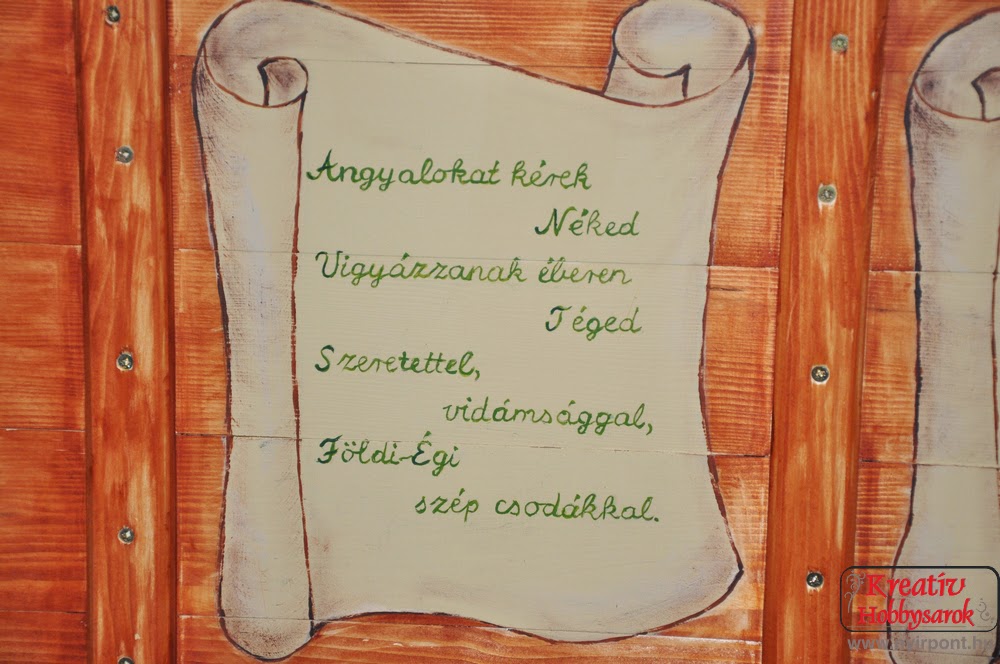 Angyalokat kérek
Néked
Vigyázzanak éberen
Téged
Szeretettel,
vidámsággal,
Földi-Égi
szép csodákkal.
Kreatív
Hobbysarok